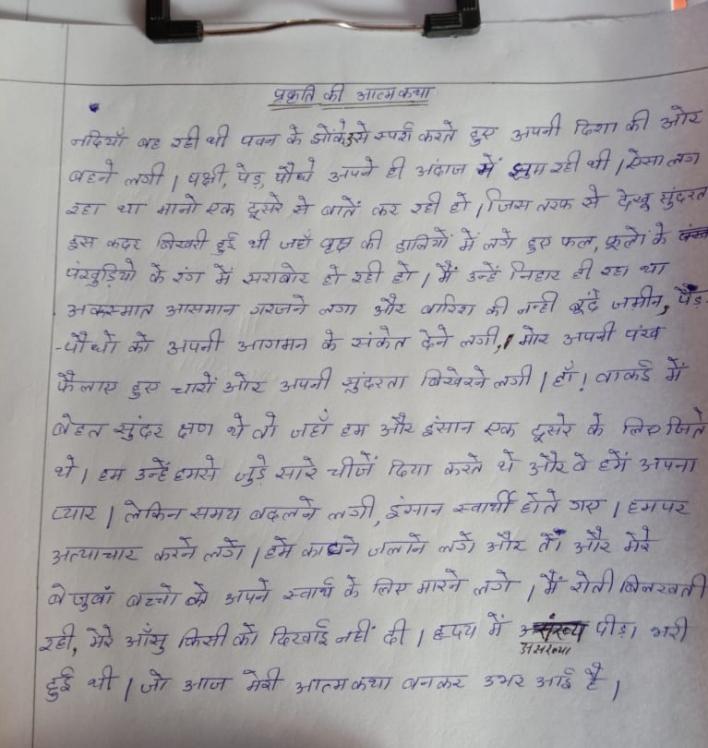 प्रकृति की आत्मकथा
नदियाँ बह रही थी पवन के झोंके से स्पर्श करते हुए अपनी दिशा की ओर
बहने लगी। पक्षी, पेड़, पौधे अपने ही अंदाज में झुम रही थी। ऐसा लग
रहा था मानो एक दूसरे से बातें कर रही हो। जिस तरफ से देखू सुंदरत
इस कदर बिखरी हुई थी जहाँ वृक्ष की डालियों में लगे हुए फल, फूलों के
पंखुड़ियो के रंग में सराबोर हो रही हो। मैं उन्हें निहार ही रहा था
अकस्मात आसमान गरजने लगा और बारिश की नन्ही बूंदे जमीन, पेड़-
-पौधों को अपनी आगमन के संकेत देने लगी। मोर अपनी पंख
फैलाए हुए चारों ओर अपनी सुंदरता बिखेरने लगी। हाँ! वाकई में
बेहत सुंदर क्षण थे वो जहाँ हम और इंसान एक दूसरे के लिए जिते
थे। हम उन्हें हमसे जुड़े सारे चीजें दिया करते थे और वे हमें अपना
प्यार। लेकिन समय बदलने लगी, इंसान स्वार्थी होते गए। हमपर
अत्याचार करने लगे। हमे काटने जलाने लगे और तो और मेरे
बेजुबाँ बच्चो को अपने स्वार्थ के लिए मारने लगे। मैं रोती बिलखती
रही, मेरे आँसु किसी को दिखाई नहीं दी। हृदय में असंख्य पीड़ा भरी
हुई थी। जो आज मेरी आत्मकथा बनकर उभर आई है।